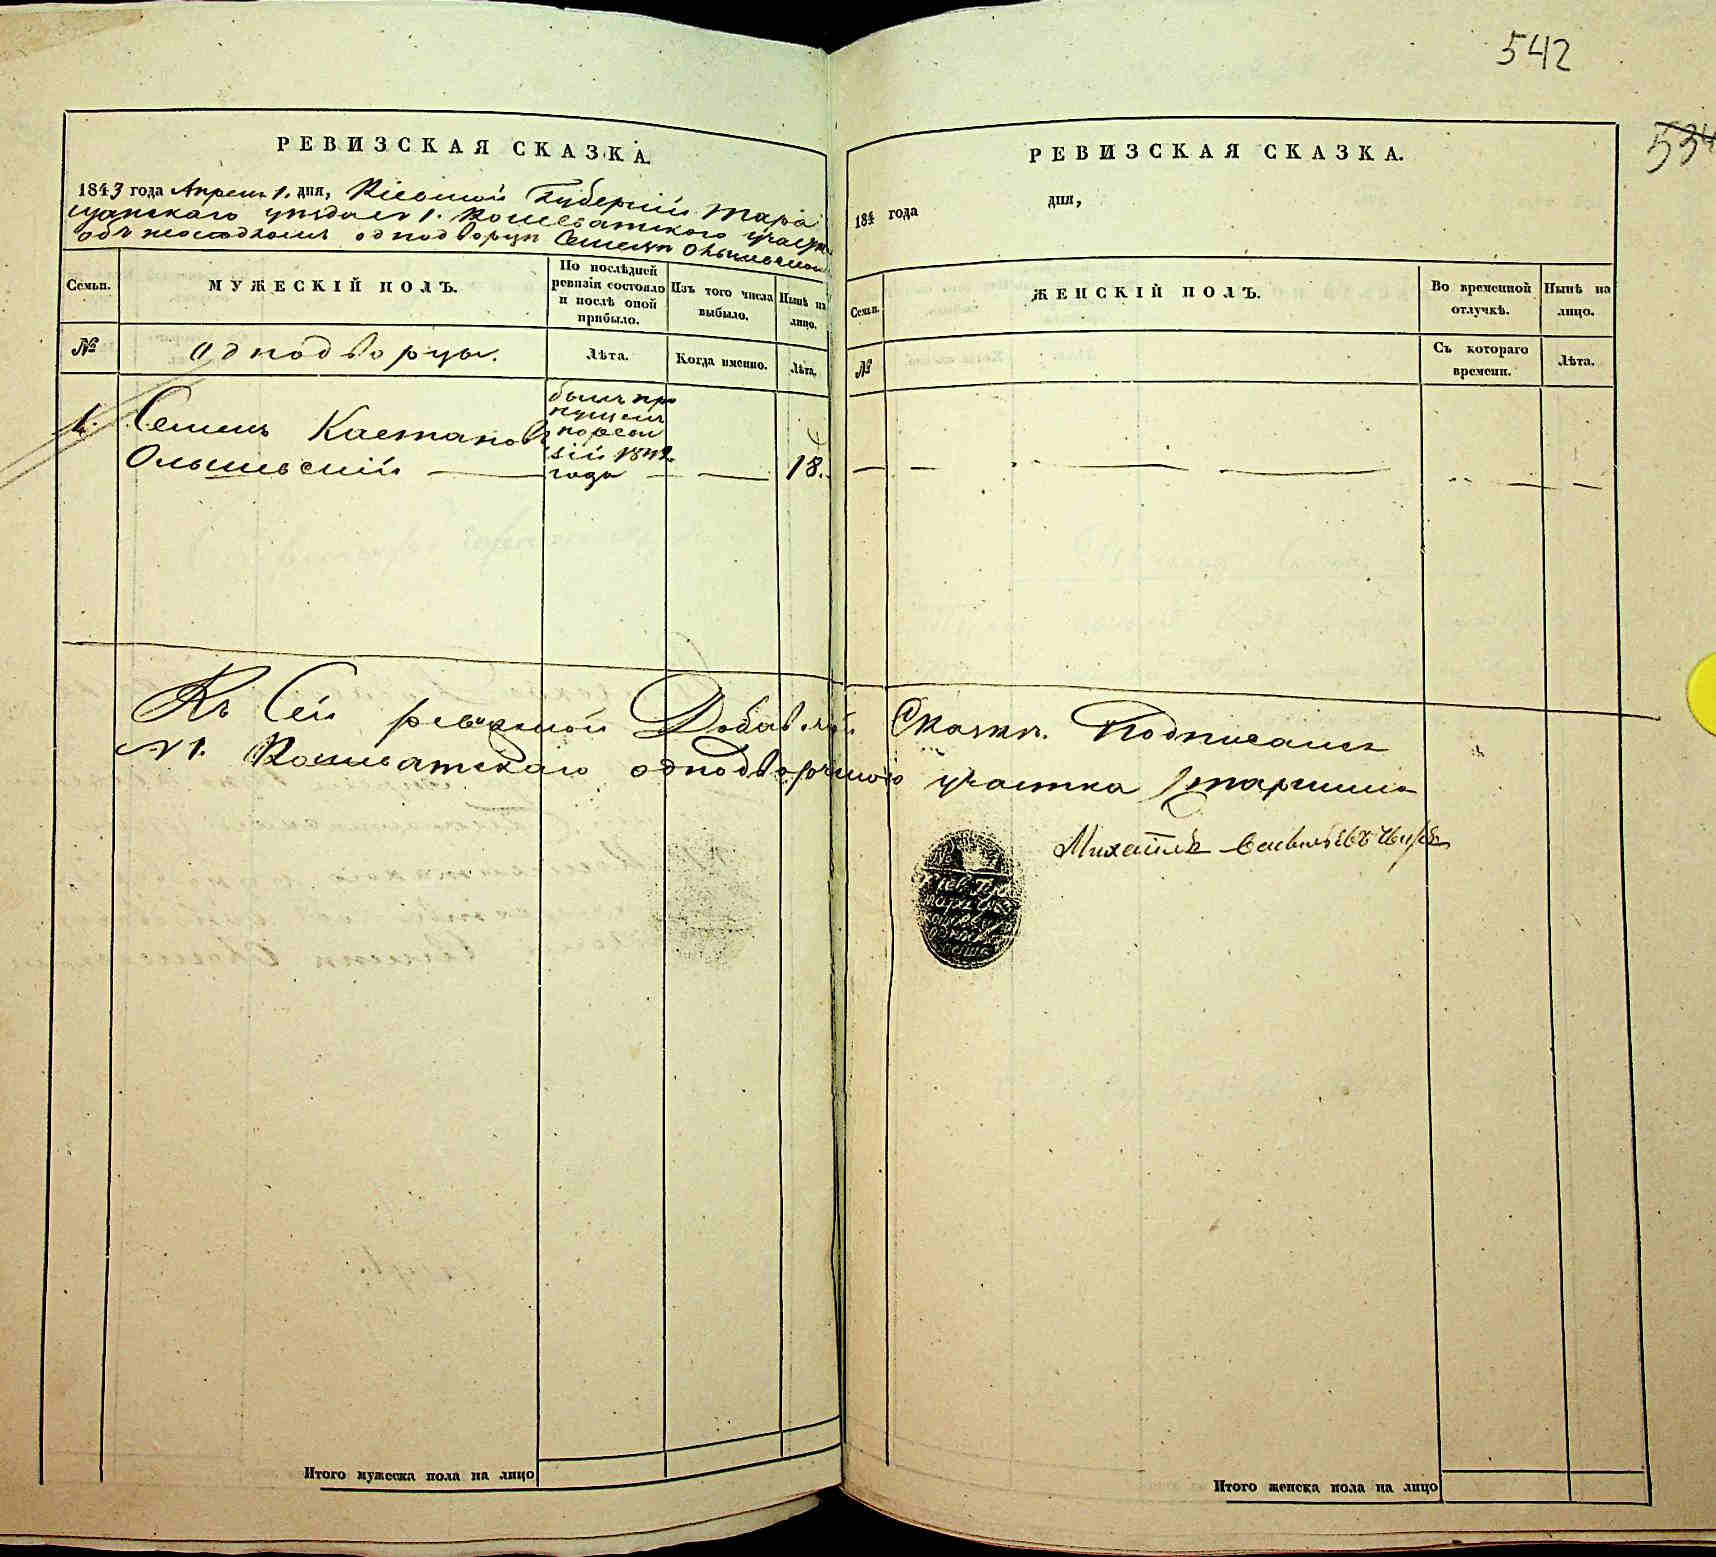 542
534
РЕВИЗСКАЯ СКАЗКА.
1843 года Апреля 1. дня, Кіевской Губерніи Тара
щанскаго уезда 1. Кошеватского участка
объ однодворце Семене Ольшевском
Семьи.
МУЖЕСКІЙ ПОЛЪ.
По послѣдней ревизіи состояло и послѣ оной прибыло.
Изъ того числа выбыло.
Нынѣ на лицо.
№
Однодворцы.
Лѣта.
Когда именно.
Лѣта.
1.
Семенъ Каетановъ
Ольшевскій
былъ про
пущенъ
по реви
зіи 1842
года
18.
Къ Сей ревизской Добавочной Сказке Подписалъ
№ 1. Кошеватскаго однодворческого участка Старшина
Михаилъ Васильевъ
Итого мужеска пола на лицо
РЕВИЗСКАЯ СКАЗКА.
184 года дня,
Семьи.
ЖЕНСКІЙ ПОЛЪ.
Во временной отлучкѣ.
Нынѣ на лицо.
№
Съ котораго времени.
Лѣта.
Итого женска пола на лицо